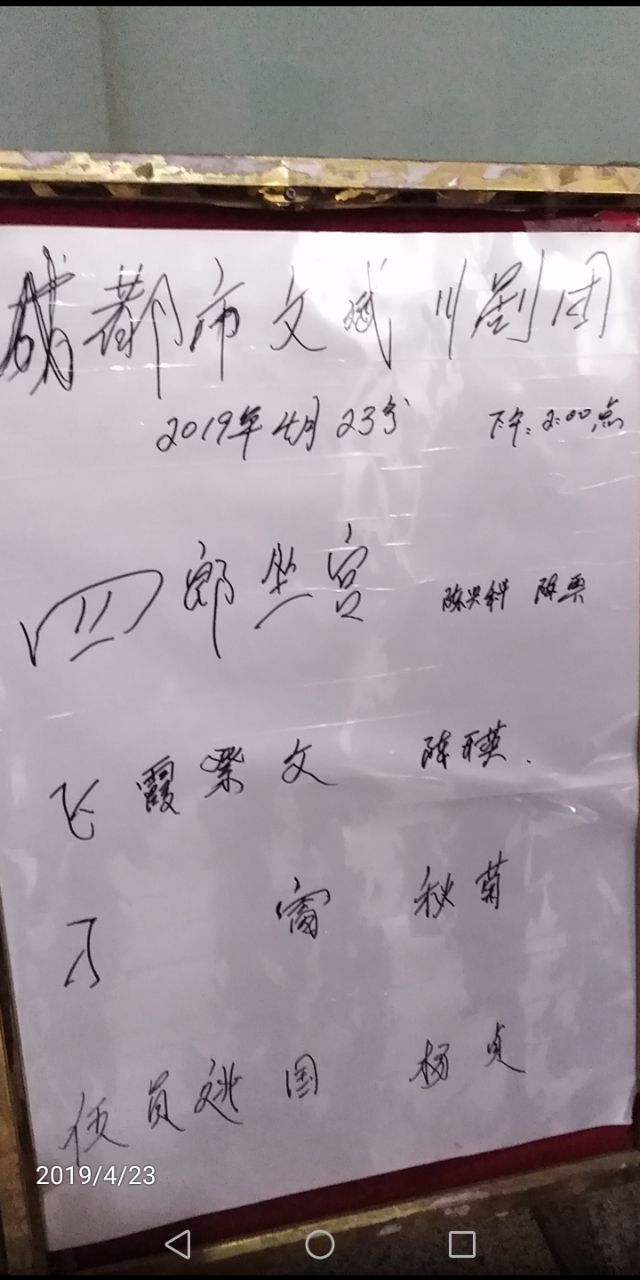 成都市文斌川剧团
2019年4月23号 下午:2:00点
四郎坐宫 陈兴科 陈勇
飞霞 文 陈
秋菊
伍员 国 杨贞
2019/4/23